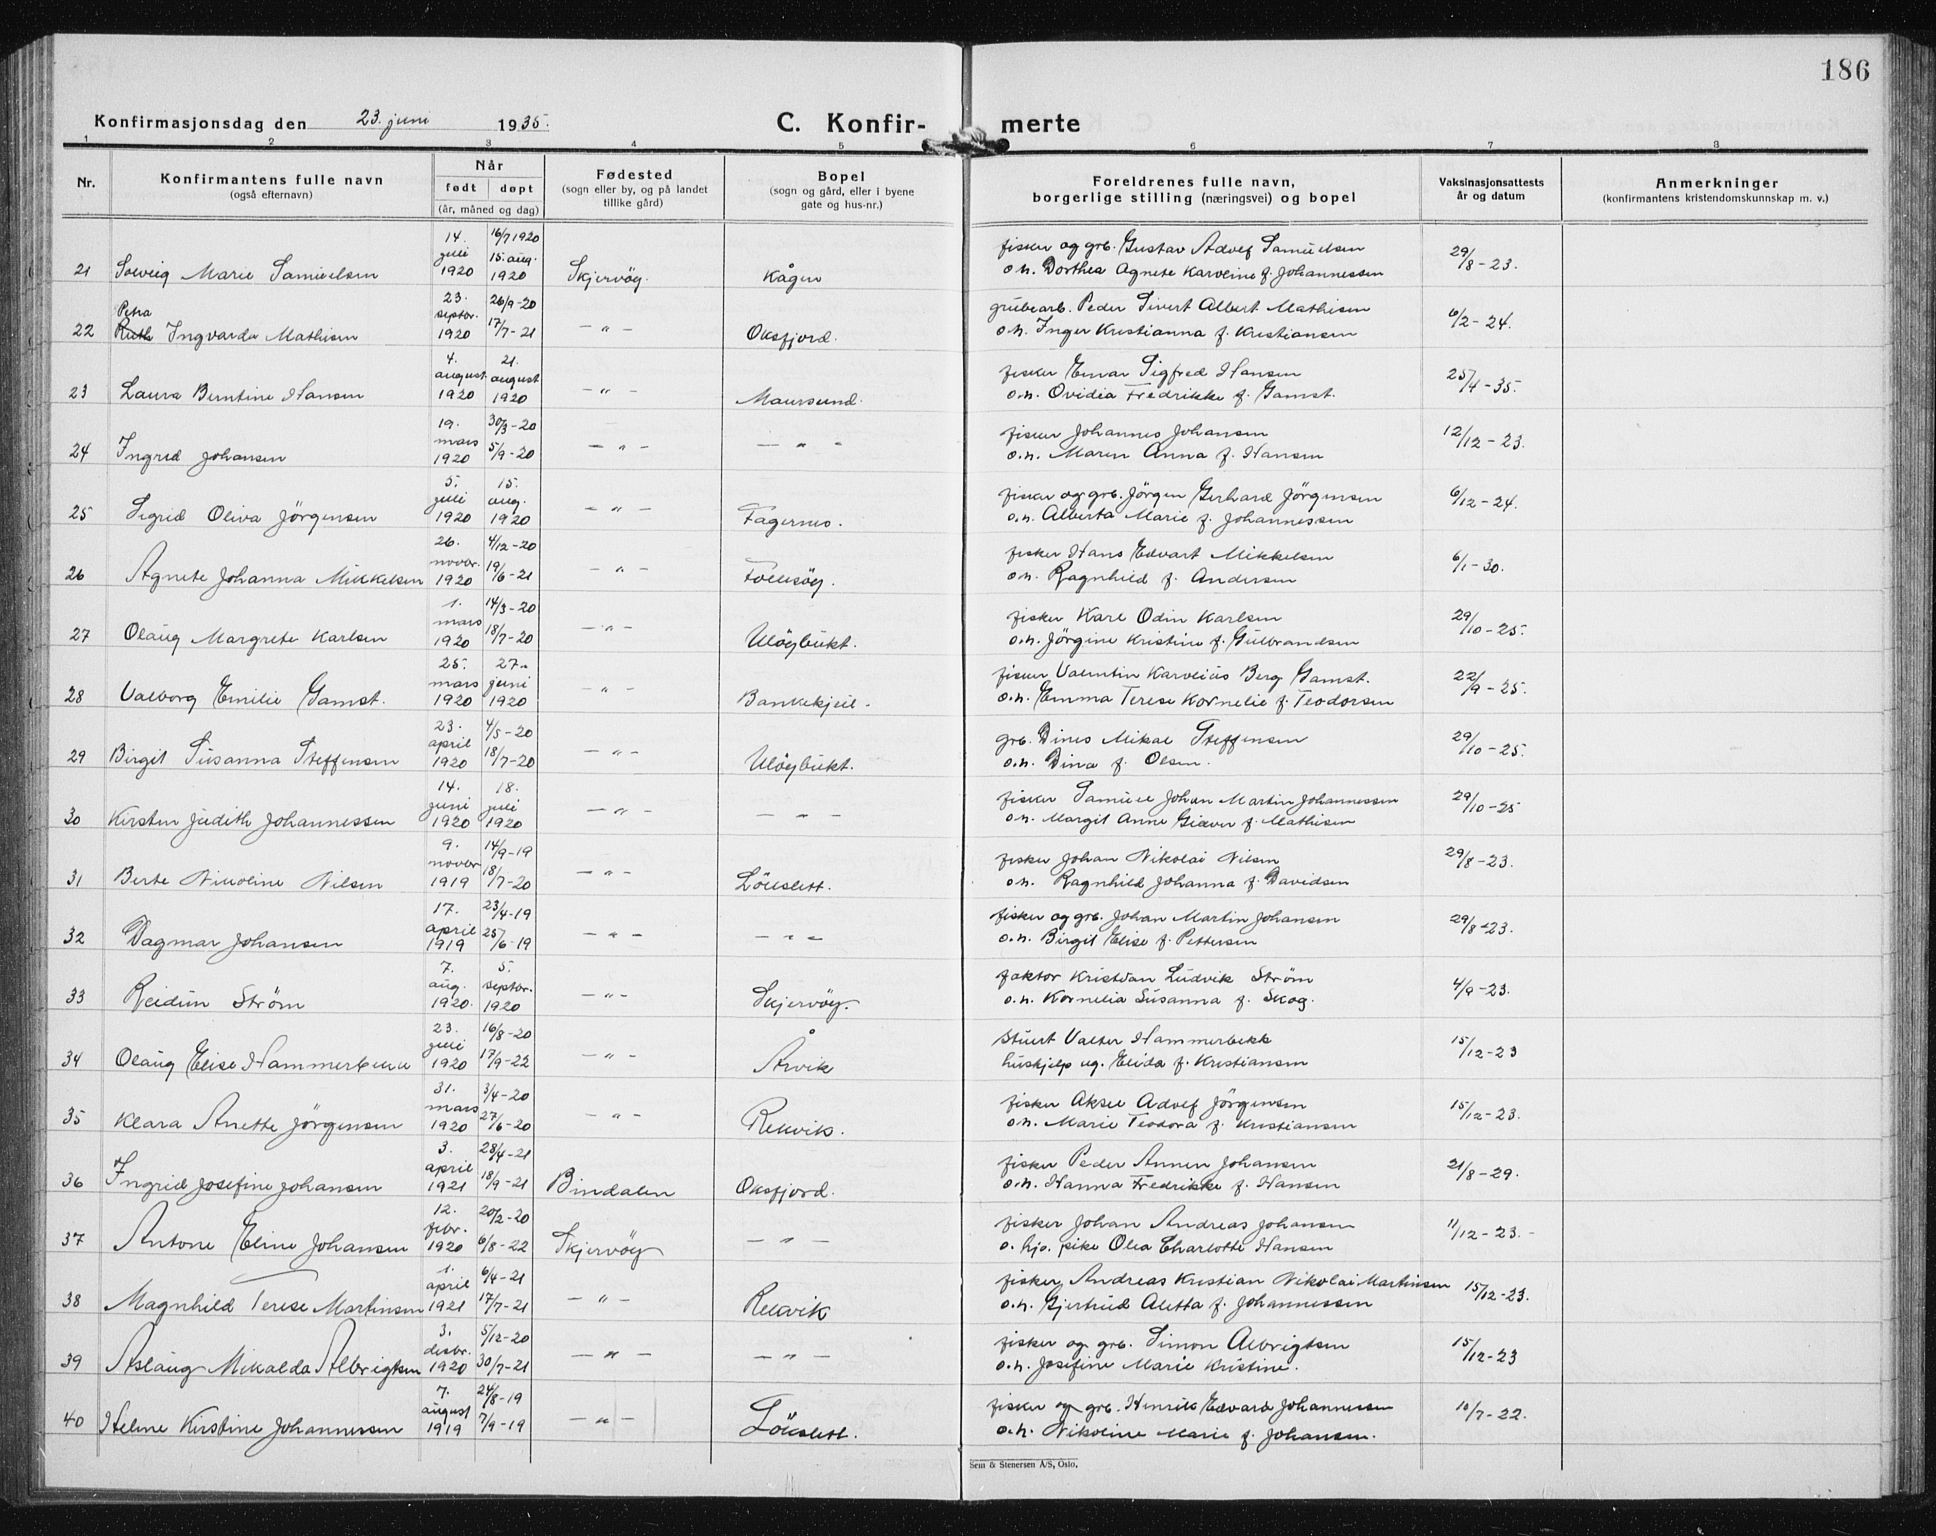 186
Konfirmasjonsdag den 23. juni 1935. C. Konfir- merte
1 2 3 4 5 6 7 8
Nr. Konfirmantens fulle navn (også efternavn) Når født døpt (år, måned og dag) Fødested (sogn eller by, og på landet tillike gård) Bopel (sogn og gård, eller i byene gate og hus-nr.) Foreldrenes fulle navn, borgerlige stilling (næringsvei) og bopel Vaksinasjonsattests år og datum Anmerkninger (konfirmantens kristendomskunnskap m. v.)
21 Solveig Marie Samuelsen 14. juli 1920 16/7 1920 15. aug. 1920 Skjervøy. Kågen fisker og grb. Gustav Adolf Samuelsen o.h. Dorthea Agnete Karoline f. Johannessen 29/8-23.
22 Petra Ruth Ingvarda Mathisen 23. septbr. 1920 26/9-20 17/7-21 -"- Oksfjord. grubearb. Peder Sivert Albert Mathisen o.h. Inger Kristianna f. Kristiansen 6/2-24.
23 Laura Berntine Hansen 4. august 1920 21. august 1920 -"- Maursund. fisker Einar Sigfred Hansen o.h. Ovidia Fredrikke f. Gamst. 25/4-35.
24 Ingrid Johansen 19. mars 1920 30/3-20 5/9-20 -"- -"- fisker Johannes Johansen o.h. Maren Anna f. Hansen 12/12-23.
25 Sigrid Oliva Jörgensen 5. juli 1920 15. aug. 1920 -"- Fagernes. fisker og grb. Jörgen Gerhard Jörgensen o.h. Alberta Marie f. Johannessen 6/12-24.
26 Agnete Johanna Mikkelsen 26. novbr. 1920 4/12-20 19/6-21 -"- Follesöy. fisker Hans Edvart Mikkelsen o.h. Ragnhild f. Andersen 6/1-30.
27 Olaug Margrete Karlsen 1. mars 1920 14/3-20 18/7-20 -"- Ulöybukt. fisker Karl Odin Karlsen o.h. Jörgine Kristine f. Gulbrandsen 29/10-25.
28 Valborg Emilie Gamst. 25. mars 1920 27. juni 1920 -"- Bankekjeil. fisker Valentin Karolius Berg Gamst. o.h. Emma Terese Kornelie f. Teodorsen 22/9-25.
29 Birgit Susanna Steffensen 23. april 1920 4/5-20 18/7-20 -"- Ulöybukt. grb. Dines Mikal Steffensen o.h. Dina f. Olsen. 29/10-25.
30 Kirsten Judith Johannessen 14. juni 1920 18. juli 1920 -"- -"- fisker Samuel Johan Martin Johannessen o.h. Margit Anne Giæver f. Mathisen 29/10-25
31 Berte Nikoline Nilsen 9. novbr 1919 14/9-19 18/7-20 -"- Lökslett. fisker Johan Nikolai Nilsen o.h. Ragnhild Johanna f. Davidsen 29/8-23.
32 Dagmar Johansen 17. april 1919 23/4-19 25/6-19 -"- -"- fisker og grb. Johan Martin Johansen o.h. Birgit Elise f. Pettersen 29/8-23.
33 Reidun Ström 7. aug. 1920. 5. septbr. 1920 -"- Skjervöy. faktor Kristian Ludvik Ström o.h. Kornelia Susanna f. Skog. 4/9-23.
34 Olaug Elise Hammerbekk 23. juli 1920 16/8-20 17/9-22 -"- Årvik stuert Valter Hammerbekk huskjelp ug. Elida f. Kristiansen 15/12-23
35 Klara Anette Jörgensen 31. mars 1920 3/4-20 27/6-20 -"- Rekvik. fisker Aksel Adolf Jörgensen o.h. Marie Teodora f. Kristiansen 15/12-23.
36 Ingrid Josefine Johansen 3. april 1921 28/4-21 18/9-21 Bindalen Oksfjord. fisker Peder Annen Johansen o.h. Hanna Fredrikke f. Hansen 21/8-29.
37 Antone Eline Johansen 12. febr. 1920 20/2-20 6/8-22 Skjervöy -"- fisker Johan Andreas Johansen o. hjo. pike Olea Charlotte Hansen 11/12-23.-
38 Magnhild Terese Martinsen 1. april 1921 6/4-21 17/7-21 -"- Rekvik fisker Andreas Kristian Nikolai Martinsen o.h. Gjertrud Aletta f. Johannessen 15/12-23.
39 Aslaug Mikalda Albrigtsen 3. desbr. 1920 5/12-20 30/7-21 -"- -"- fisker og grb. Simon Albrigtsen o.h. Josefine Marie Kristine. 15/12-23
40 Helene Kirstine Johannessen 7. august 1919 24/8-19 7/9-19 -"- Lökslett. fisker og grb. Henrik Edvard Johannessen o.h. Nikoline Marie f. Johansen. 10/7-22.
Sem & Stenersen A/S, Oslo.